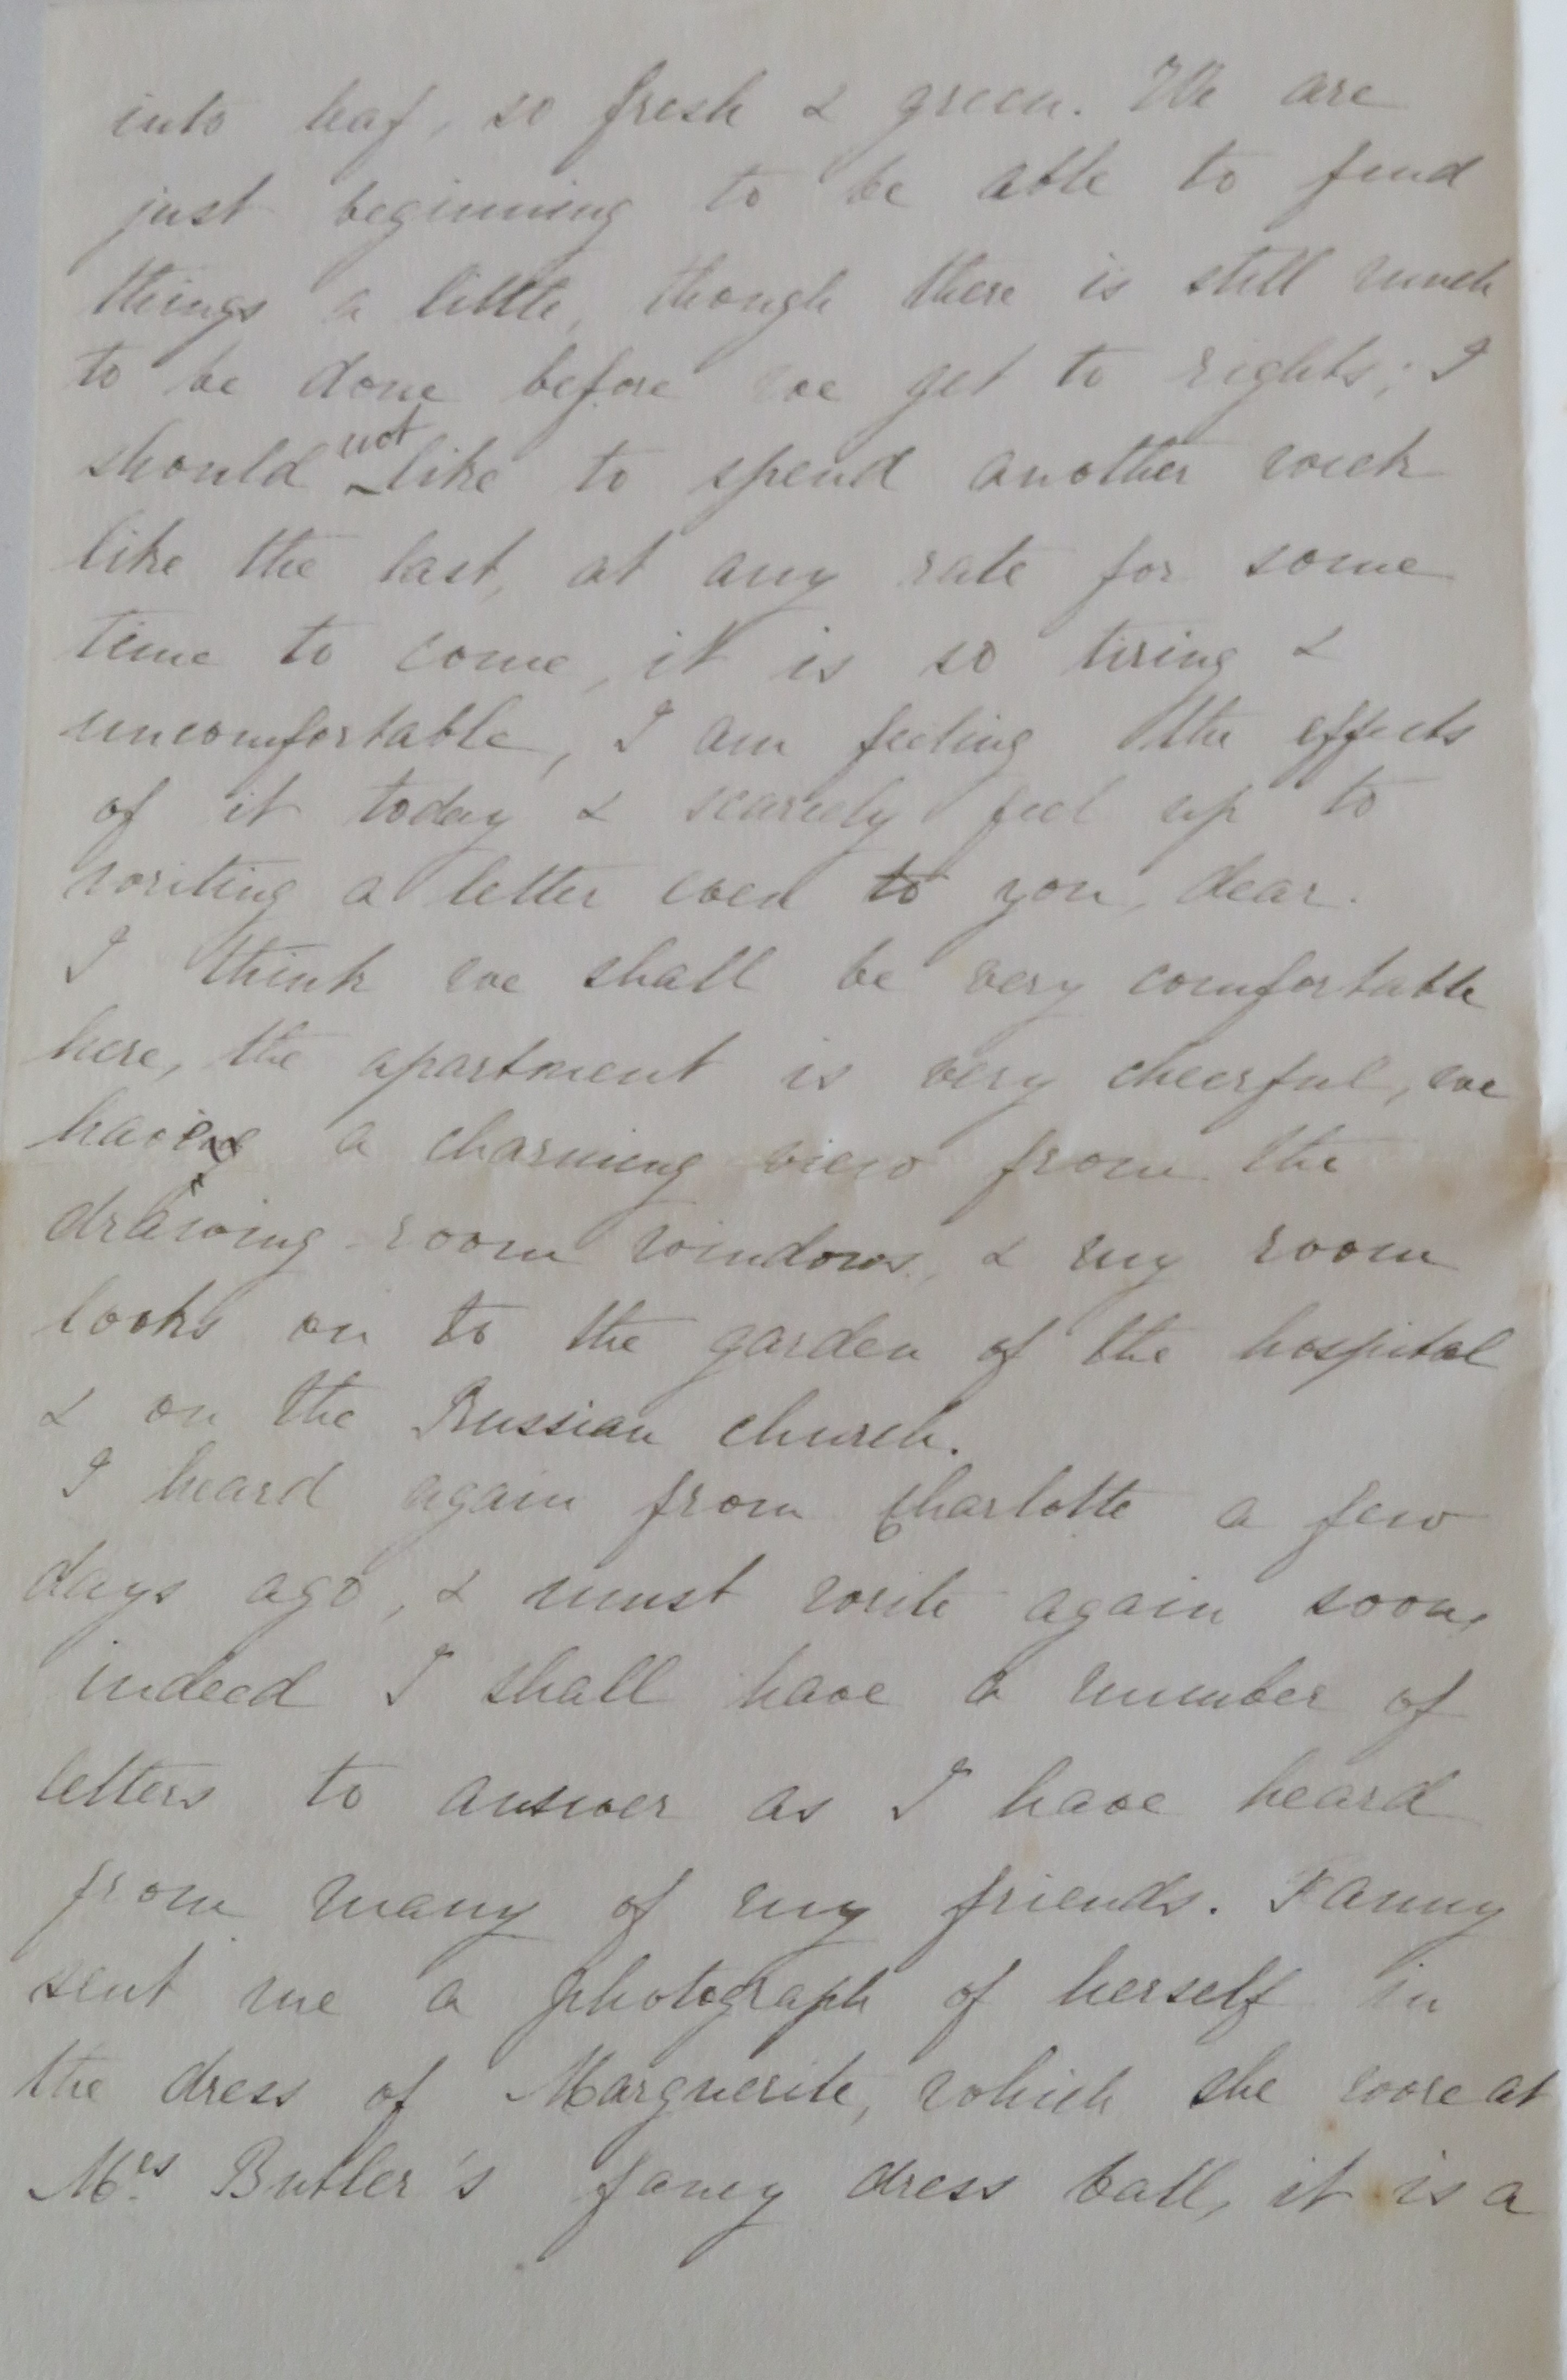 into leaf, so fresh & green. We are
just beginning to be able to find
things a little, though there is still much
to be done before we get to rights; I
should not like to spend another week
like the last, at any rate for some
time to come, it is so tiring &
uncomfortable, I am feeling the effects
of it today & scarcely feel up to
writing a letter even to you, dear.
I think we shall be very comfortable
here, the apartment is very cheerful, we
having a charming view from the
drawing-room windows, & my room
looks on to the garden of the hospital
& on the Russian church.
I heard again from Charlotte a few
days ago, & must write again soon,
indeed I shall have a number of
letters to answer as I have heard
from many of my friends. Fanny
sent me a photograph of herself in
the dress of Marguerite, which she wore at
Mrs Butler's fancy dress ball, it is a